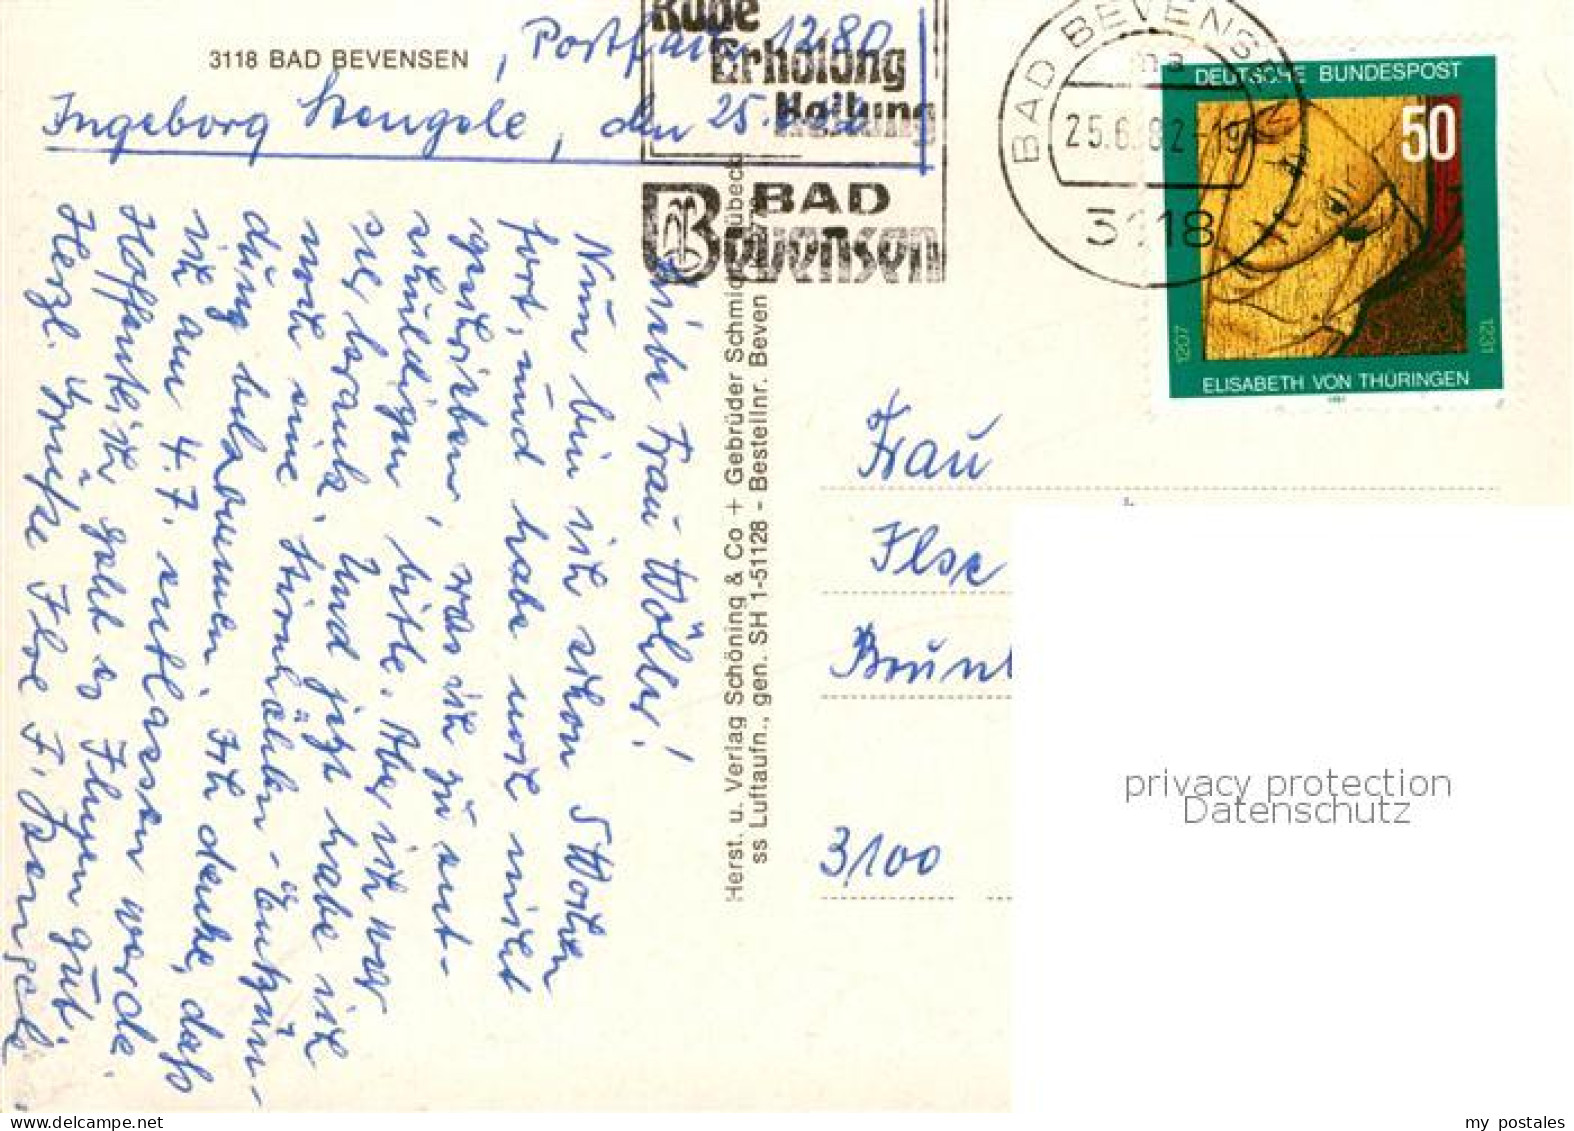 3118 BAD BEVENSEN , Postfach 1280
Ingeborg Stengele, den 25.6.82
Ruhe
Erholung
Heilung
BAD
Bevensen
BAD BEVENSEN
ma
25.6.82-19
3118
DEUTSCHE BUNDESPOST
50
1207
1231
ELISABETH VON THÜRINGEN
Liebe Frau Wöhler!
Nun bin ich schon 5 Wochen
fort, und habe noch nicht
geschrieben, was ich zu ent-
schuldigen bitte. Aber ich war
sehr krank. Und jetzt habe ich
noch eine Stirnhöhlen-Entzün-
dung bekommen. Ich denke, daß
ich am 4.7. entlassen werde.
Hoffentlich geht es Ihnen gut.
Herzl. Grüße Ihre I. Stengele
Herst. u. Verlag Schöning & Co + Gebrüder Schmidt, Lübeck
ss Luftaufn., gen. SH 1-51128 - Bestellnr. Beven
Frau
Ilse
3100
privacy protection
Datenschutz
my postales